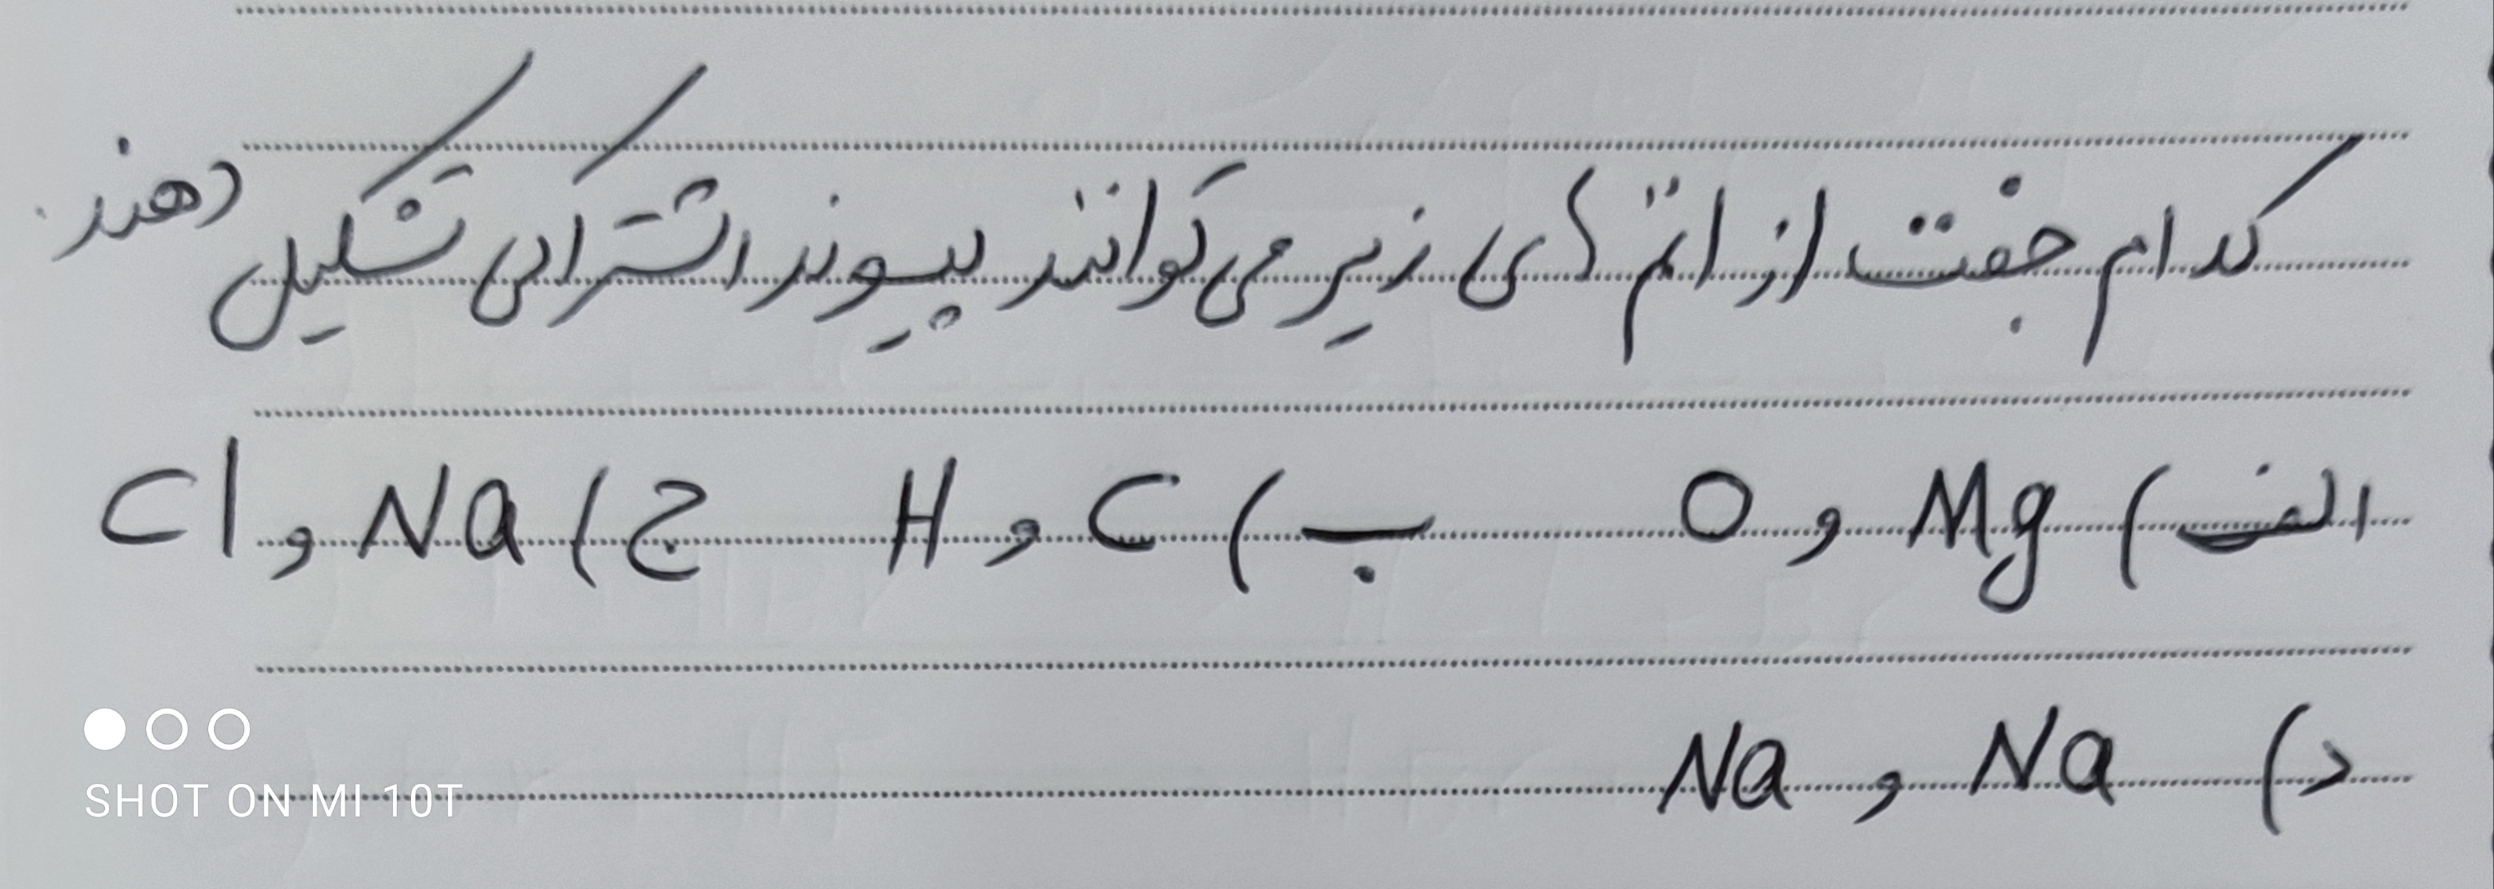 کدام جفت از اتم های زیر می توانند پیوند اشتراکی تشکیل دهند.
الف) Mg و O ب) C و H ج) Na و Cl
د) Na و Na
SHOT ON MI 10T